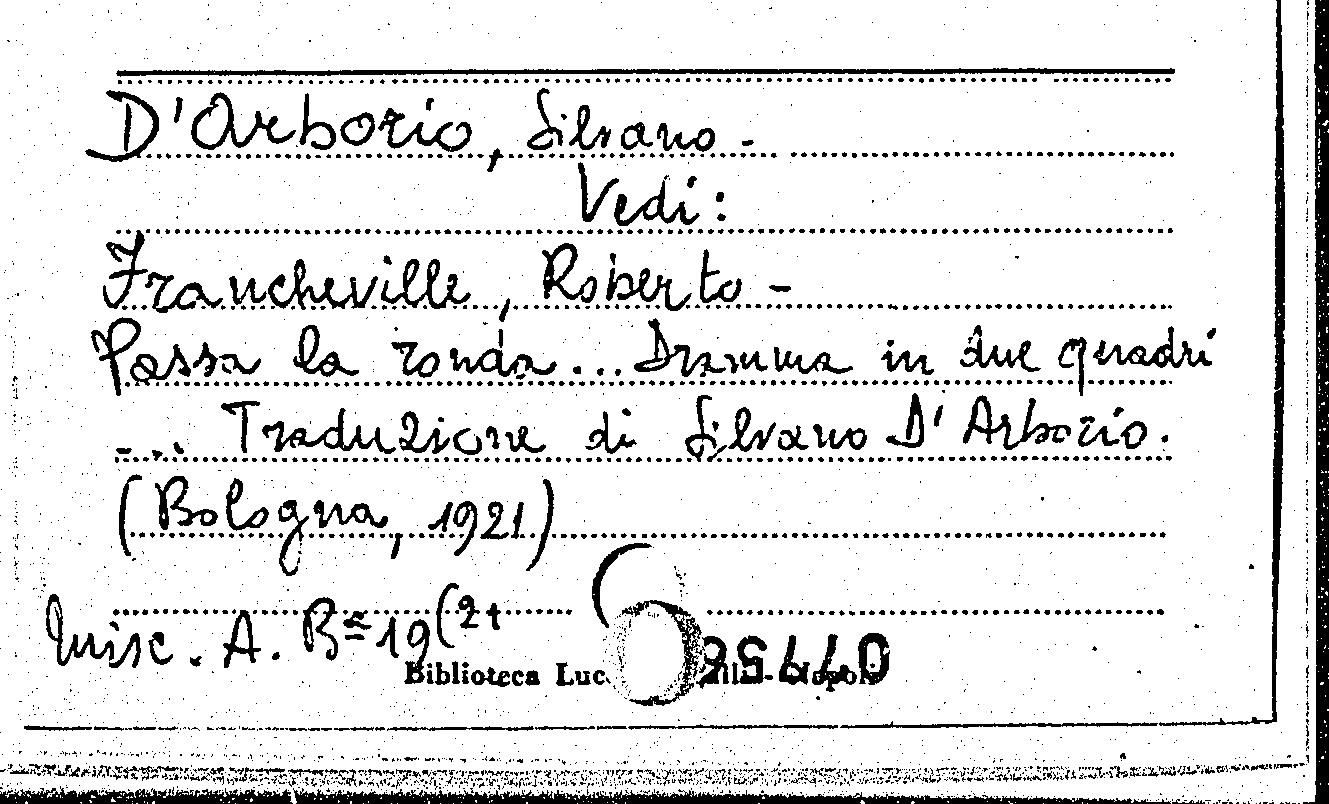 D'Arborio, Silvano -
Vedi:
Francheville, Roberto -
Passa la ronda... Dramma in due quadri
... Traduzione di Silvano D'Arborio.
(Bologna, 1921)
Misc. A. Bª 19 (21
Biblioteca